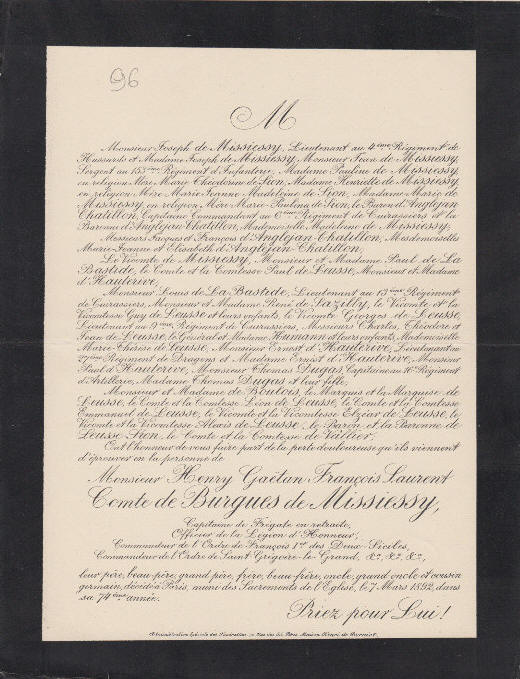 96
M
Monsieur Joseph de Missiessy, Lieutenant au 4ème Régiment de
Hussards et Madame Joseph de Missiessy, Monsieur Jean de Missiessy,
Sergent au 153ème Régiment d'Infanterie, Madame Pauline de Missiessy,
en religion Mère Marie Théodorine de Sion, Madame Henriette de Missiessy,
en religion Mère Marie Jeanne Madeleine de Sion, Madame Marie de
Missiessy, en religion Mère Marie Paulina de Sion, le Baron d'Anglejan-
Chatillon, Capitaine Commandant au 6ème Régiment de Cuirassiers et la
Baronne d'Anglejan-Chatillon, Mademoiselle Madeleine de Missiessy;
Messieurs Jacques et François d'Anglejan-Chatillon, Mesdemoiselles
Marie-Jeanne et Elisabeth d'Anglejan-Chatillon;
Le Vicomte de Missiessy, Monsieur et Madame Paul de La
Bastide, le Comte et la Comtesse Paul de Leusse, Monsieur et Madame
d'Hauterive;
Monsieur Louis de La Bastide, Lieutenant au 13ème Régiment
de Cuirassiers, Monsieur et Madame René de Sazilly, le Vicomte et la
Vicomtesse Guy de Leusse et leurs enfants, le Vicomte Georges de Leusse,
Lieutenant au 9ème Régiment de Cuirassiers, Messieurs Charles, Théodore et
Jean de Leusse, le Général et Madame Humann et leurs enfants, Mademoiselle
Marie-Thérèse de Leusse, Monsieur Ernest d'Hauterive, Lieutenant au
27ème Régiment de Dragons et Madame Ernest d'Hauterive, Monsieur
Paul d'Hauterive, Monsieur Thomas Dugas, Capitaine au 16e Régiment
d'Artillerie, Madame Thomas Dugas et leur fille;
Monsieur et Madame de Boutois, le Marquis et la Marquise de
Leusse, le Comte et la Comtesse Léon de Leusse, le Comte et la Comtesse
Emmanuel de Leusse, le Vicomte et la Vicomtesse Elzéar de Leusse, le
Vicomte et la Vicomtesse Alexis de Leusse, le Baron et la Baronne de
Leusse-Sion, le Comte et la Comtesse de Vallier,
Ont l'honneur de vous faire part de la perte douloureuse qu'ils viennent
d'éprouver en la personne de
Monsieur Henry Gaëtan François Laurent
Comte de Burgues de Missiessy,
Capitaine de Frégate en retraite,
Officier de la Légion d'Honneur,
Commandeur de l'Ordre de François 1er des Deux-Siciles,
Commandeur de l'Ordre de Saint Grégoire-le-Grand, &a, &a, &a,
leur père, beau-père, grand'père, frère, beau-frère, oncle, grand'oncle et cousin
germain, décédé à Paris, muni des Sacrements de l'Eglise, le 7 Mars 1892, dans
sa 74ème année.
Priez pour Lui!